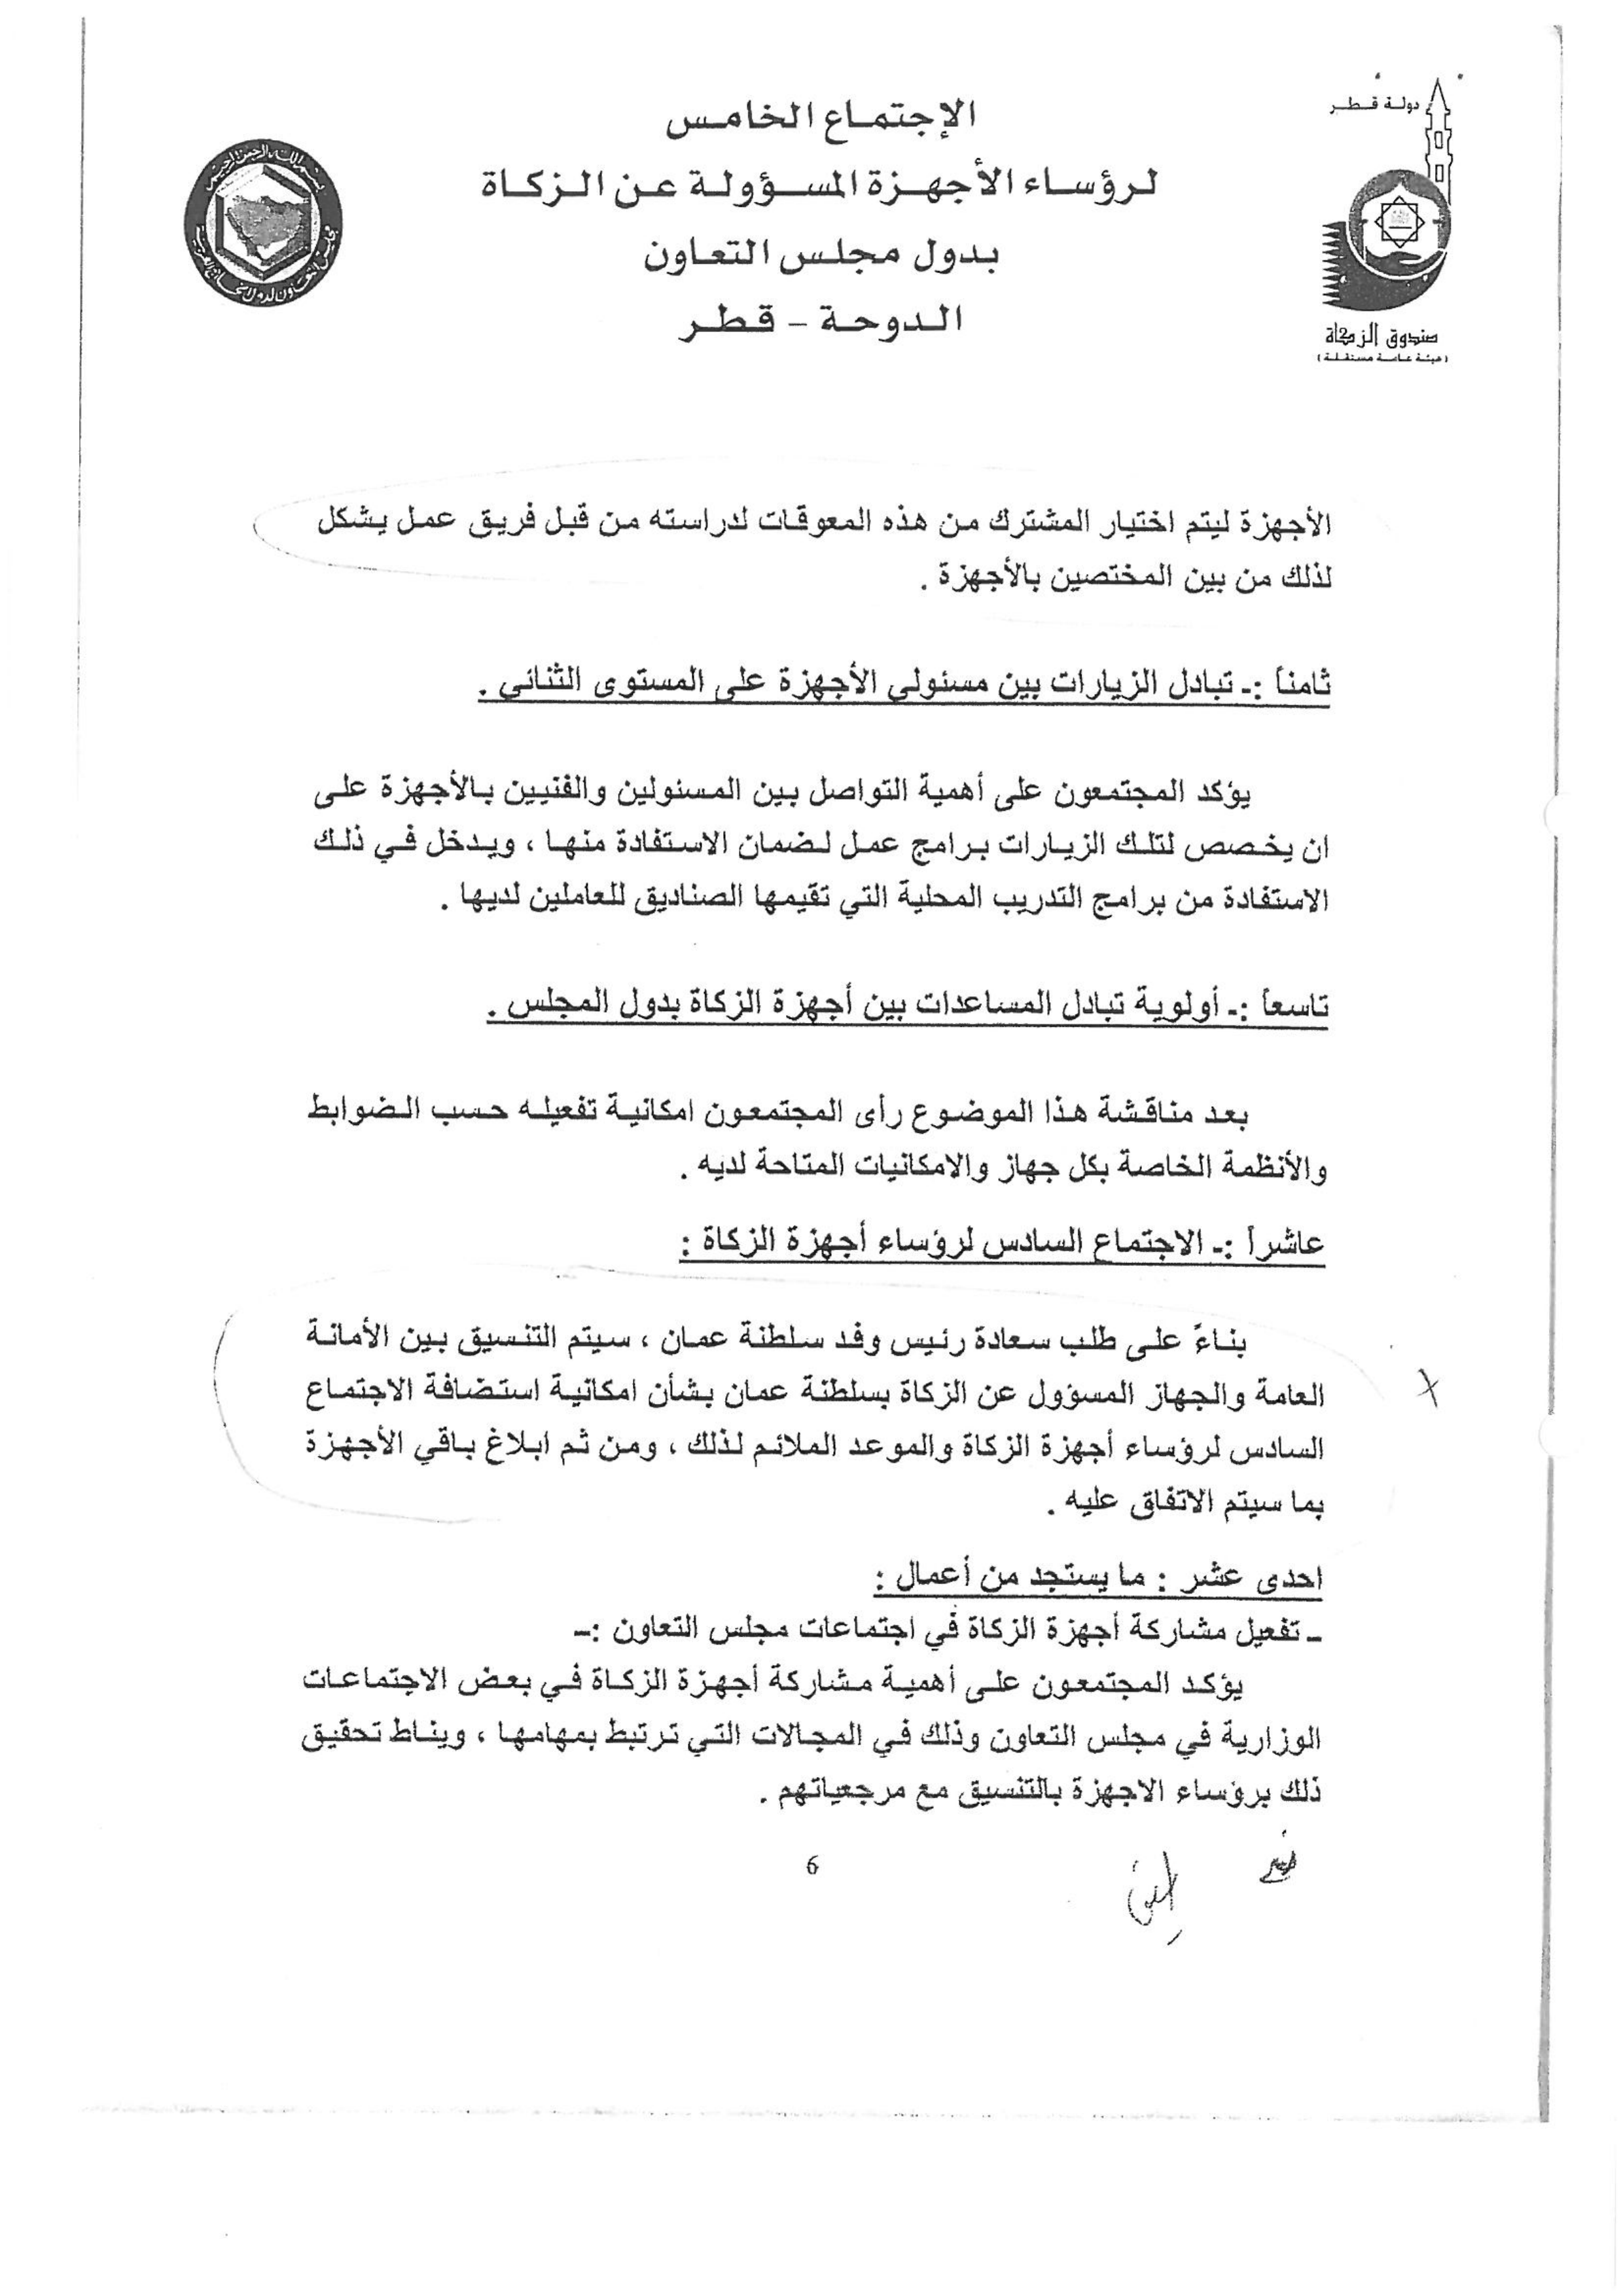 دولة قطر
صندوق الزكاة
(هيئة عامة مستقلة)
الإجتماع الخامس
لرؤساء الأجهزة المسؤولة عن الزكاة
بدول مجلس التعاون
الدوحة - قطر
الأجهزة ليتم اختيار المشترك من هذه المعوقات لدراسته من قبل فريق عمل يشكل
لذلك من بين المختصين بالأجهزة .
ثامناً :ـ تبادل الزيارات بين مسئولي الأجهزة على المستوى الثنائي .
يؤكد المجتمعون على أهمية التواصل بين المسئولين والفنيين بالأجهزة على
ان يخصص لتلك الزيارات برامج عمل لضمان الاستفادة منها ، ويدخل في ذلك
الاستفادة من برامج التدريب المحلية التي تقيمها الصناديق للعاملين لديها .
تاسعاً :ـ أولوية تبادل المساعدات بين أجهزة الزكاة بدول المجلس .
بعد مناقشة هذا الموضوع رأى المجتمعون امكانية تفعيله حسب الضوابط
والأنظمة الخاصة بكل جهاز والامكانيات المتاحة لديه .
عاشراً :ـ الاجتماع السادس لرؤساء أجهزة الزكاة :
بناءً على طلب سعادة رئيس وفد سلطنة عمان ، سيتم التنسيق بين الأمانة
العامة والجهاز المسؤول عن الزكاة بسلطنة عمان بشأن امكانية استضافة الاجتماع
السادس لرؤساء أجهزة الزكاة والموعد الملائم لذلك ، ومن ثم ابلاغ باقي الأجهزة
بما سيتم الاتفاق عليه .
احدى عشر : ما يستجد من أعمال :
ـ تفعيل مشاركة أجهزة الزكاة في اجتماعات مجلس التعاون :ـ
يؤكد المجتمعون على أهمية مشاركة أجهزة الزكاة في بعض الاجتماعات
الوزارية في مجلس التعاون وذلك في المجالات التي ترتبط بمهامها ، ويناط تحقيق
ذلك برؤساء الاجهزة بالتنسيق مع مرجعياتهم .
6